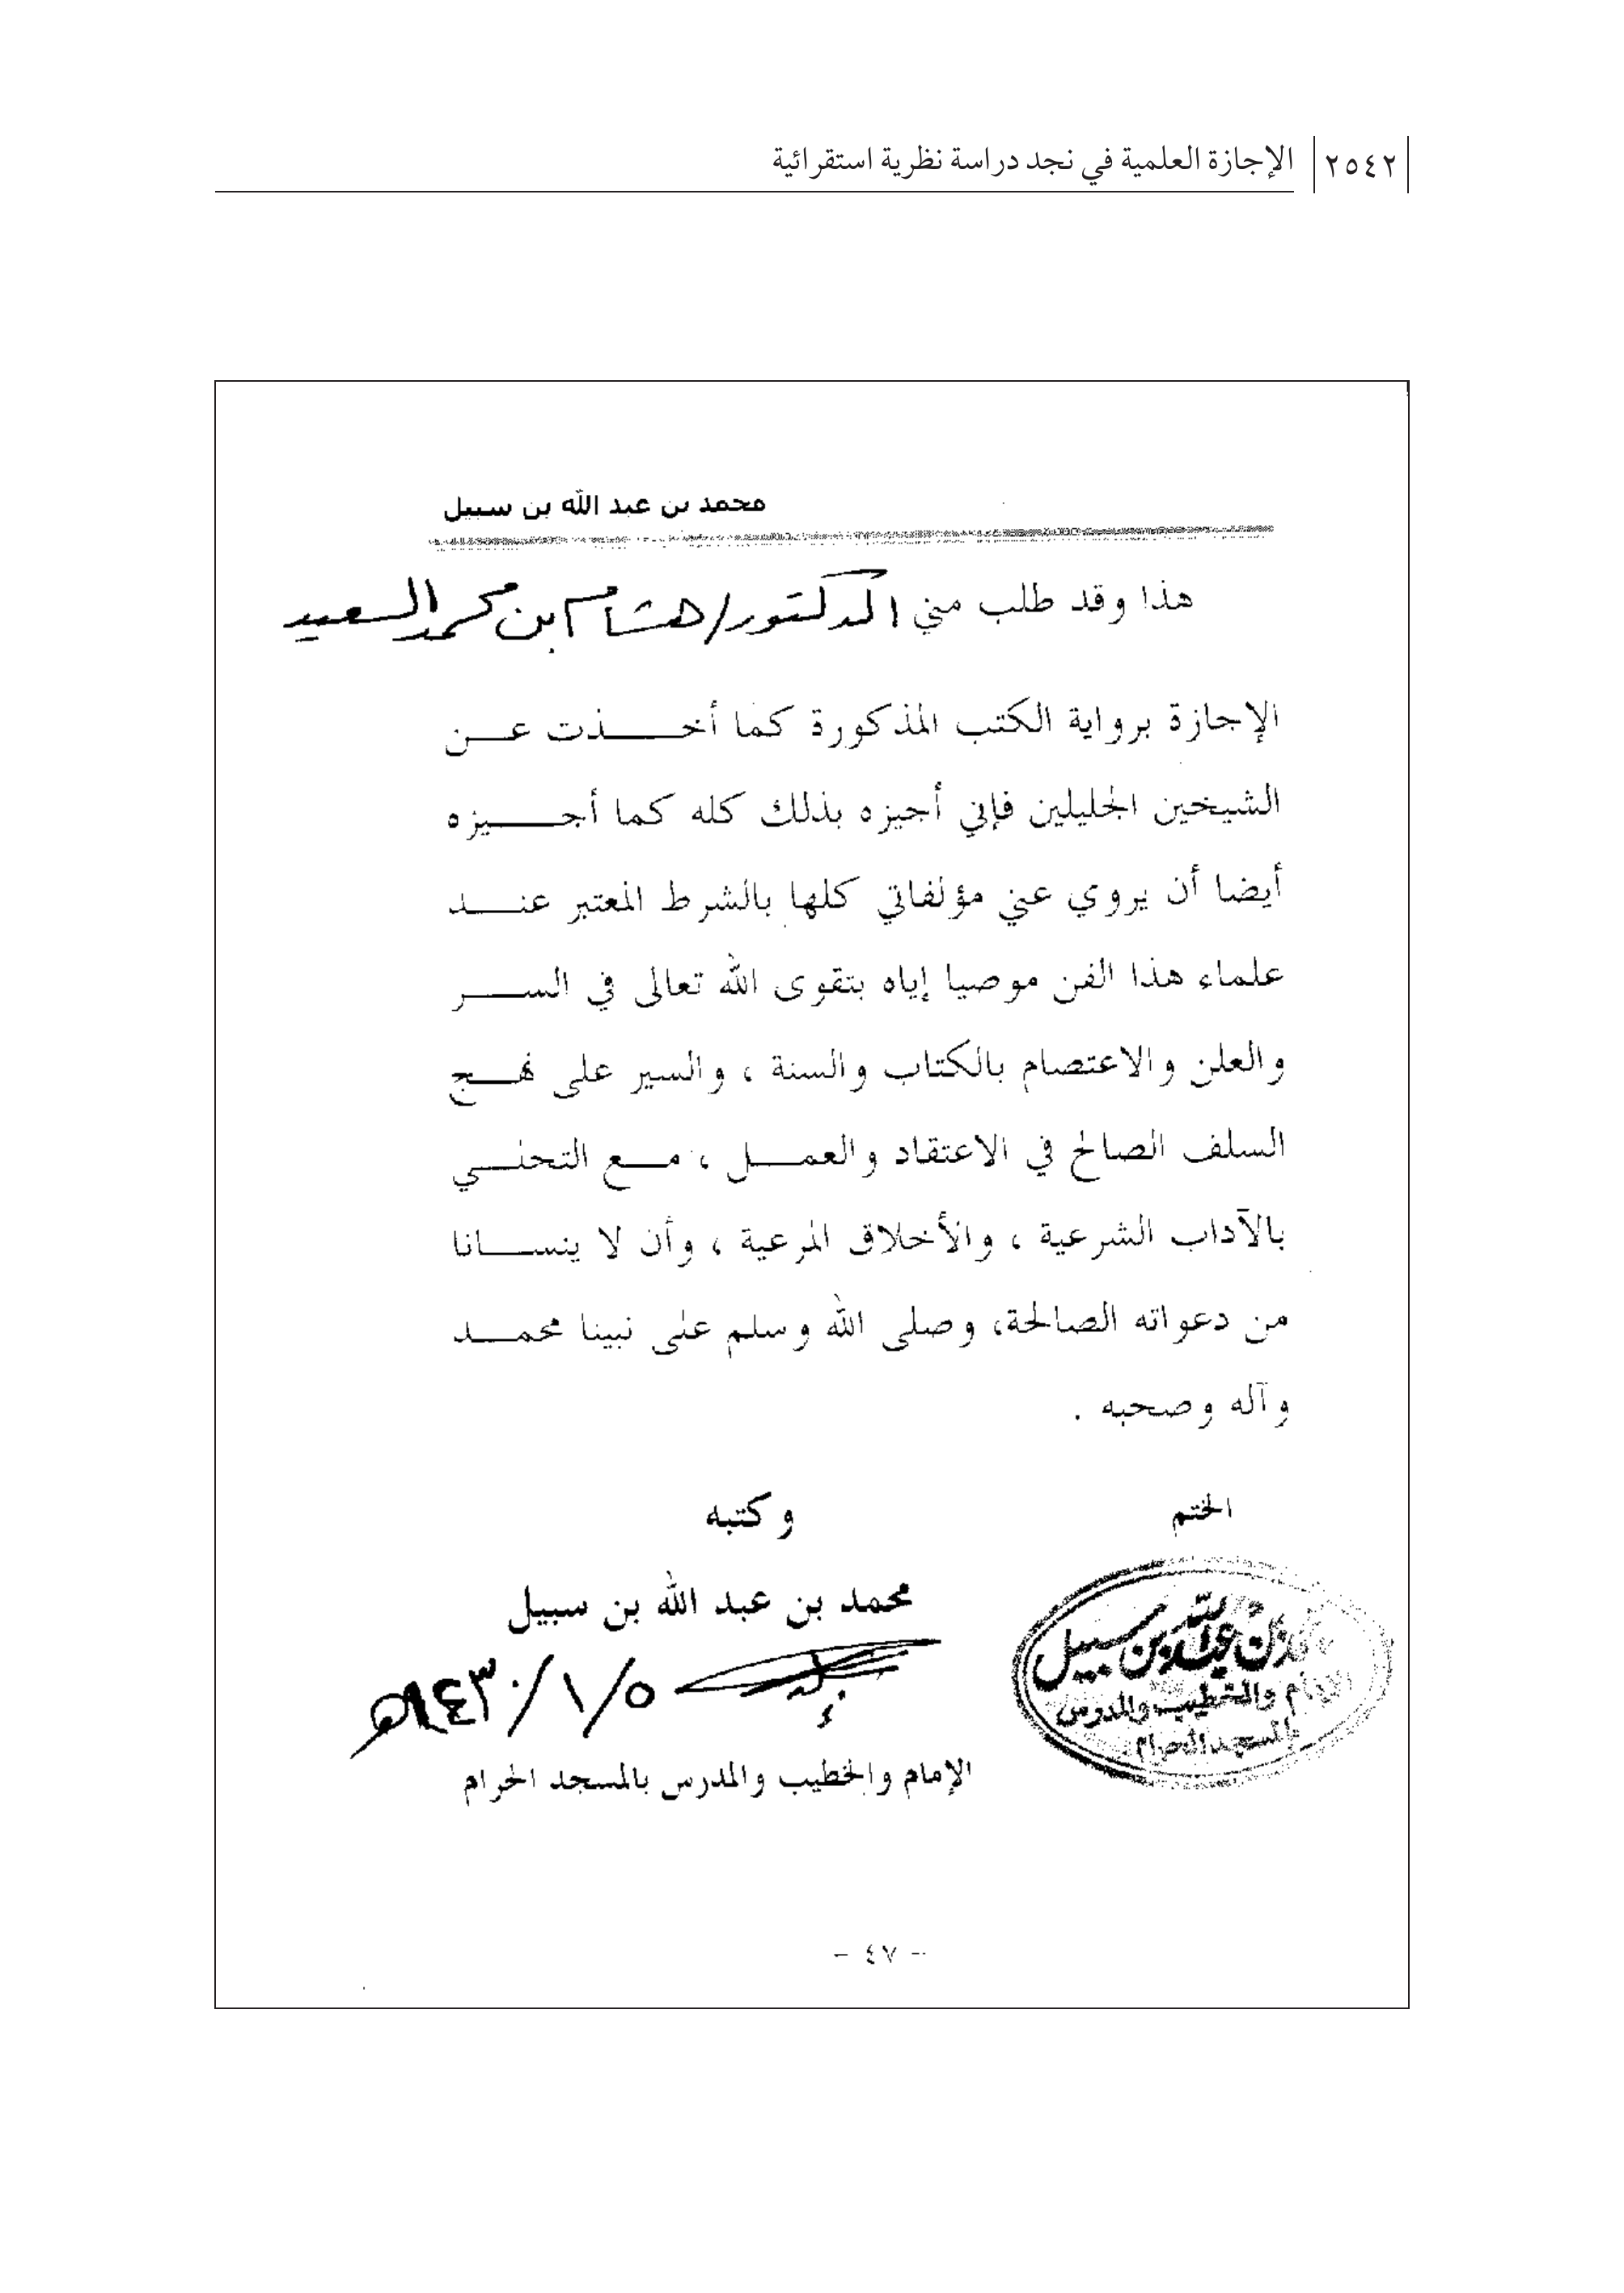 ٢٥٤٢ الإجازة العلمية في نجد دراسة نظرية استقرائية
محمد بن عبد الله بن سبيل
هذا وقد طلب مني الدكتور/هشام بن محمد السعيد
الإجازة برواية الكتب المذكورة كما أخذت عن
الشيخين الجليلين فإني أجيزه بذلك كله كما أجيزه
أيضا أن يروي عني مؤلفاتي كلها بالشرط المعتبر عند
علماء هذا الفن موصيا إياه بتقوى الله تعالى في السر
والعلن والاعتصام بالكتاب والسنة ، والسير على نهج
السلف الصالح في الاعتقاد والعمل ، مع التحلي
بالآداب الشرعية ، والأخلاق المرعية ، وأن لا ينسانا
من دعواته الصالحة، وصلى الله وسلم على نبينا محمد
وآله وصحبه .
الختم
وكتبه
محمد بن عبد الله بن سبيل
١٤٣٠/١/٥هـ
الإمام والخطيب والمدرس بالمسجد الحرام
بن عبد الله بن سبيل
الإمام والخطيب والمدرس
بالمسجد الحرام
- ٤٧ -